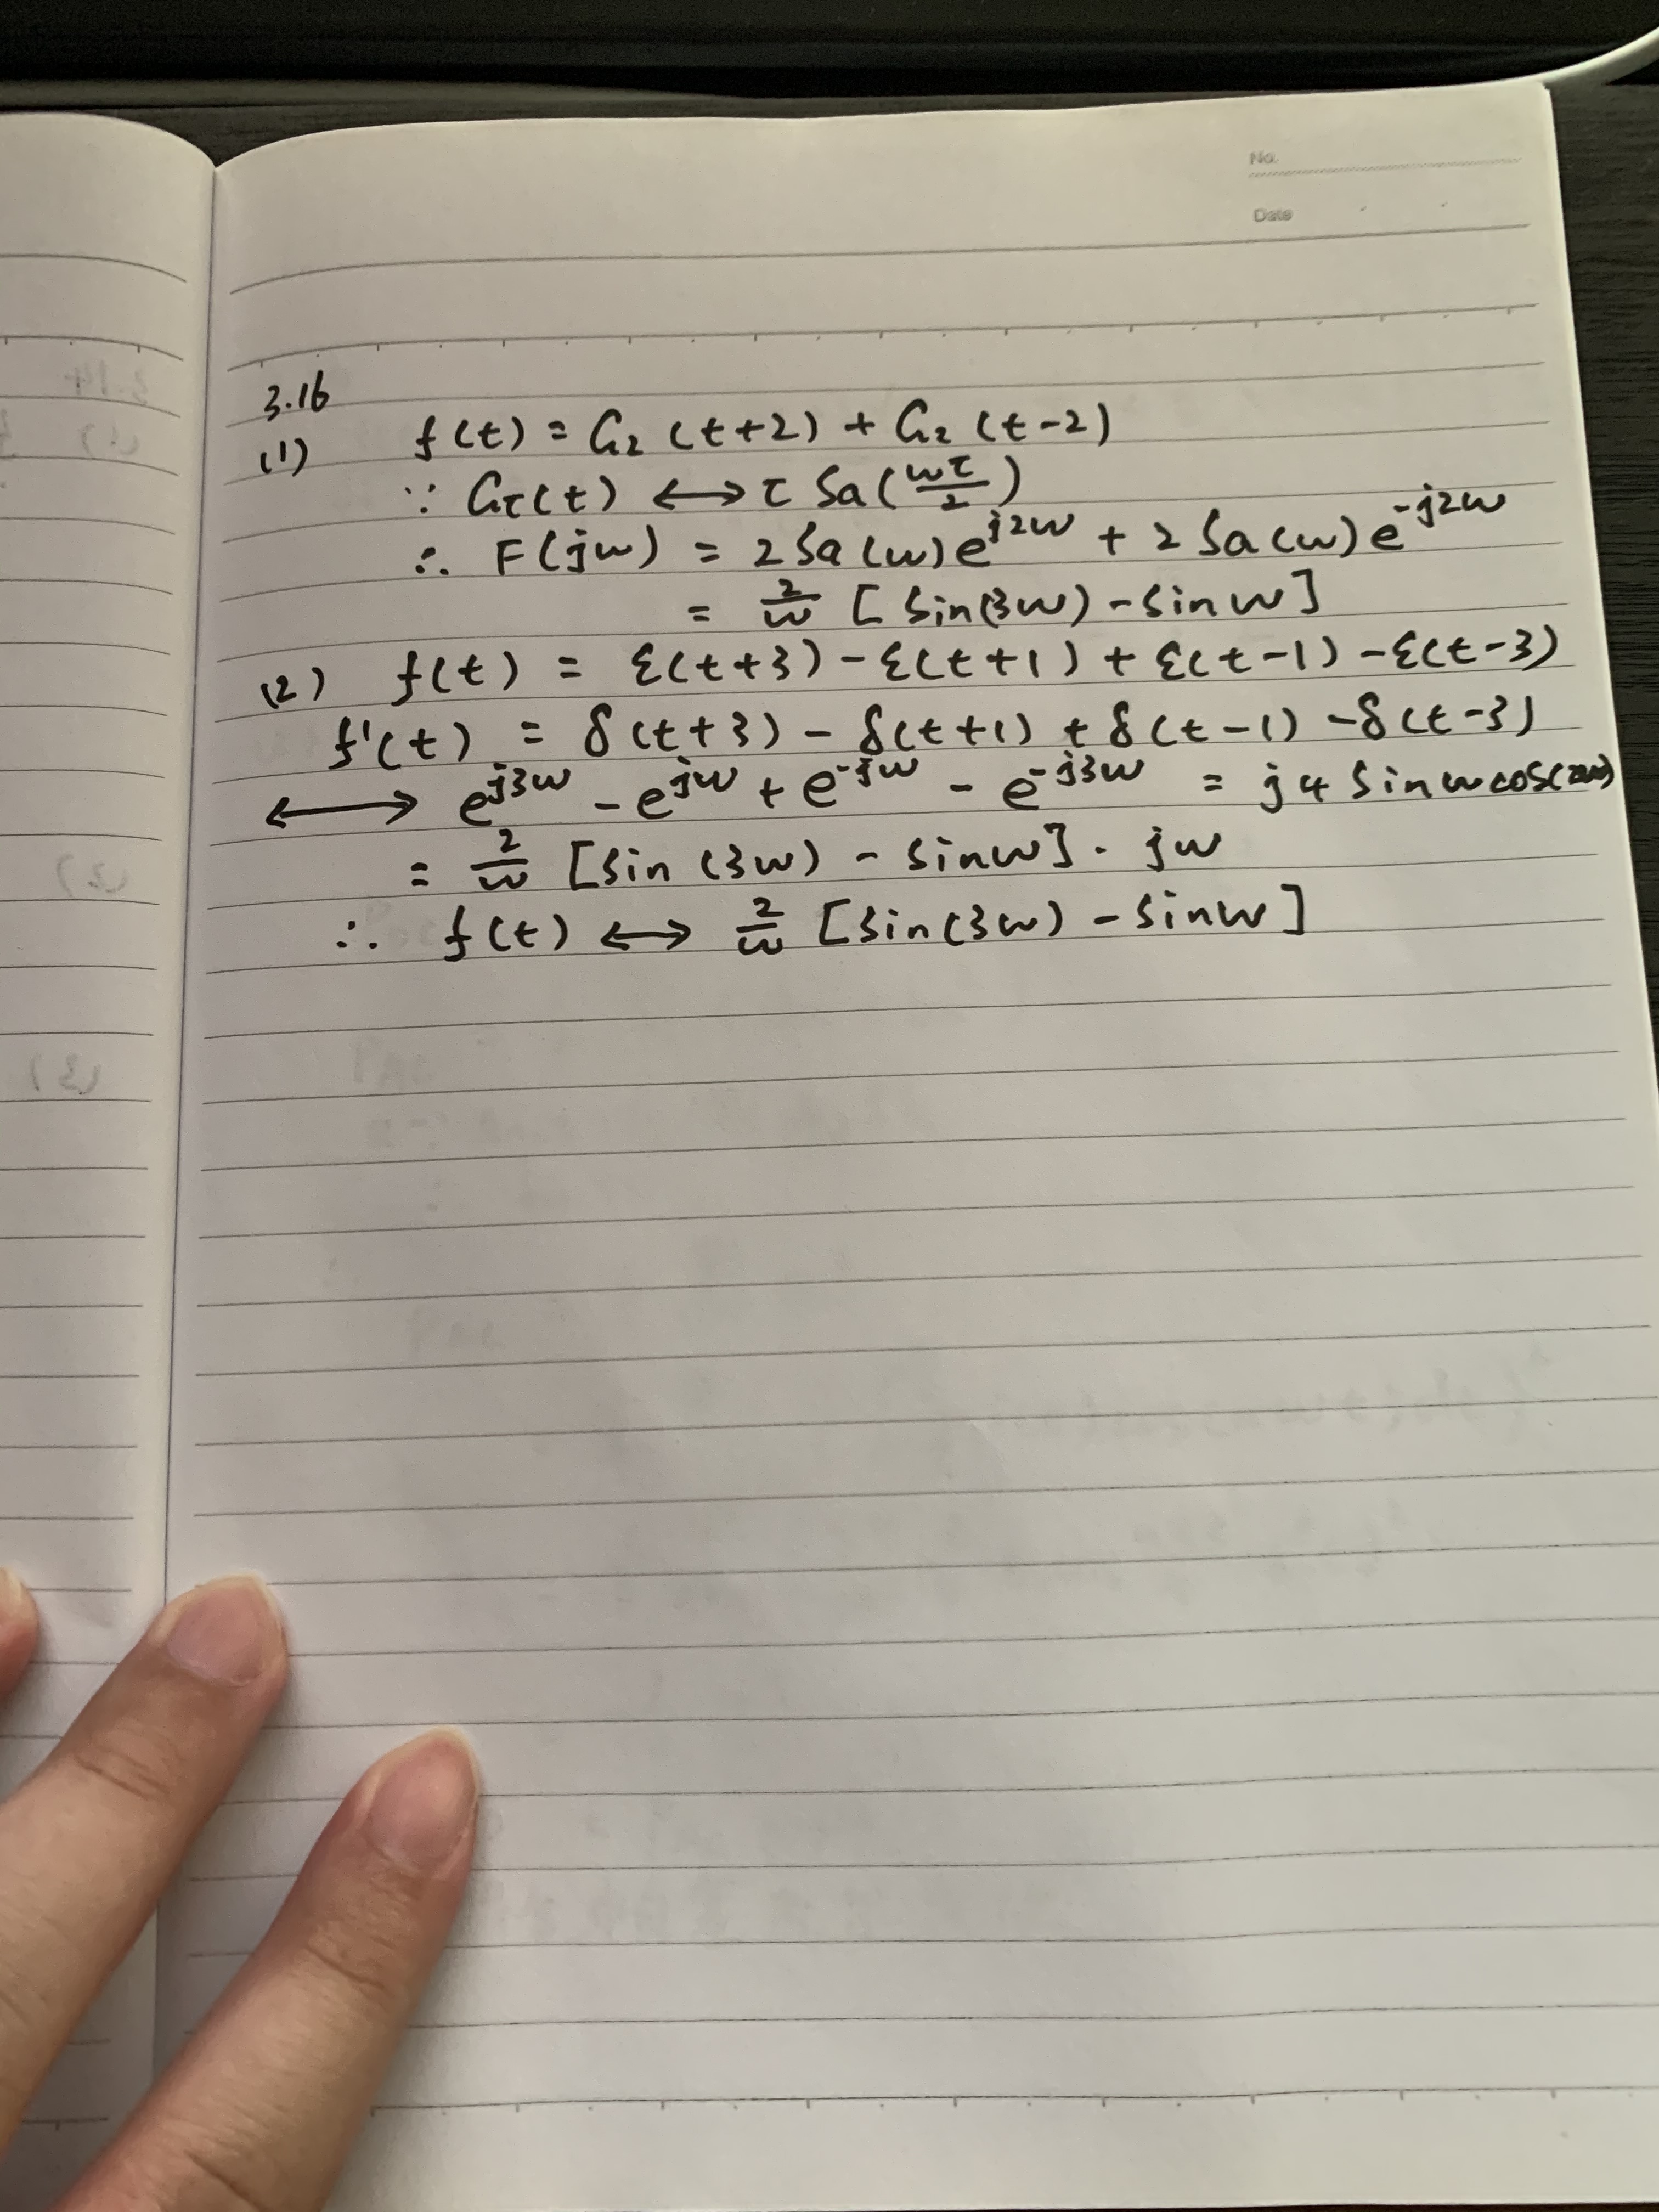 No.
Date
3.16
(1) f(t) = G₂(t+2) + G₂(t-2)
∵ Gτ(t) ⟷ τ Sa(ωτ/2)
∴ F(jω) = 2Sa(ω)e^{j2ω} + 2Sa(ω)e^{-j2ω}
= 2/ω [sin(3ω) - sinω]
(2) f(t) = ε(t+3) - ε(t+1) + ε(t-1) - ε(t-3)
f'(t) = δ(t+3) - δ(t+1) + δ(t-1) - δ(t-3)
⟷ e^{j3ω} - e^{jω} + e^{-jω} - e^{-j3ω} = j4 sinω cos(2ω)
= 2/ω [sin(3ω) - sinω] · jω
∴ f(t) ⟷ 2/ω [sin(3ω) - sinω]